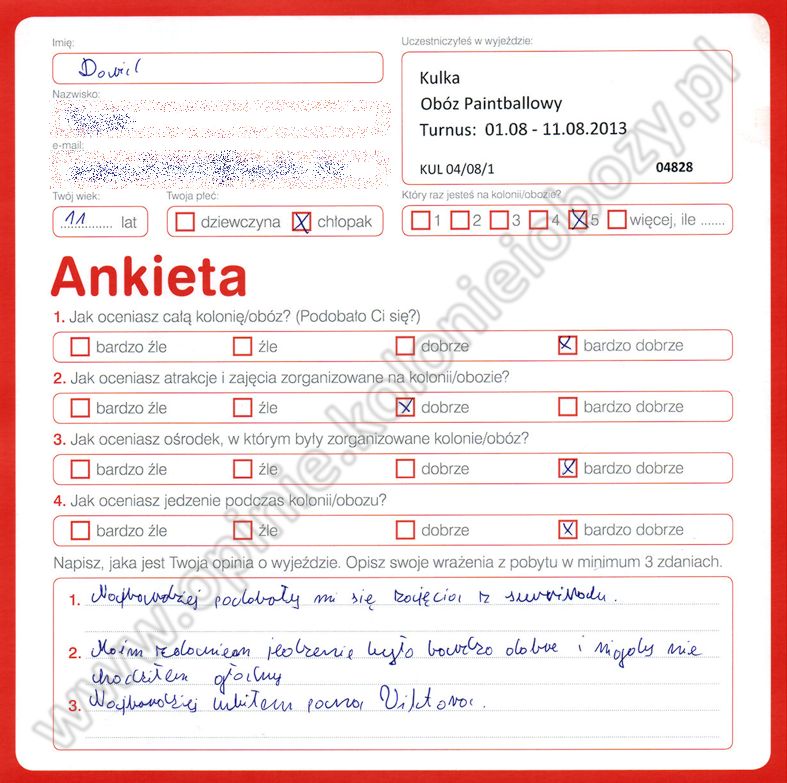 Imię:
Dawid
Nazwisko:
e-mail:
Twój wiek:
11 lat
Twoja płeć:
dziewczyna X chłopak
Uczestniczyłeś w wyjeździe:
Kulka
Obóz Paintballowy
Turnus: 01.08 - 11.08.2013
KUL 04/08/1 04828
Który raz jesteś na kolonii/obozie?
1 2 3 4 X 5 więcej, ile .......
Ankieta
1. Jak oceniasz całą kolonię/obóz? (Podobało Ci się?)
bardzo źle źle dobrze X bardzo dobrze
2. Jak oceniasz atrakcje i zajęcia zorganizowane na kolonii/obozie?
bardzo źle źle X dobrze bardzo dobrze
3. Jak oceniasz ośrodek, w którym były zorganizowane kolonie/obóz?
bardzo źle źle dobrze X bardzo dobrze
4. Jak oceniasz jedzenie podczas kolonii/obozu?
bardzo źle źle dobrze X bardzo dobrze
Napisz, jaka jest Twoja opinia o wyjeździe. Opisz swoje wrażenia z pobytu w minimum 3 zdaniach.
1. Najbardziej podobały mi się zajęcia z surviwalu.
2. Moim zdaniem jedzenie było bardzo dobre i nigdy nie
chodziłem głodny
3. Najbardziej lubiłem pana Viktora.
www.opinie.kolonieiobozy.pl